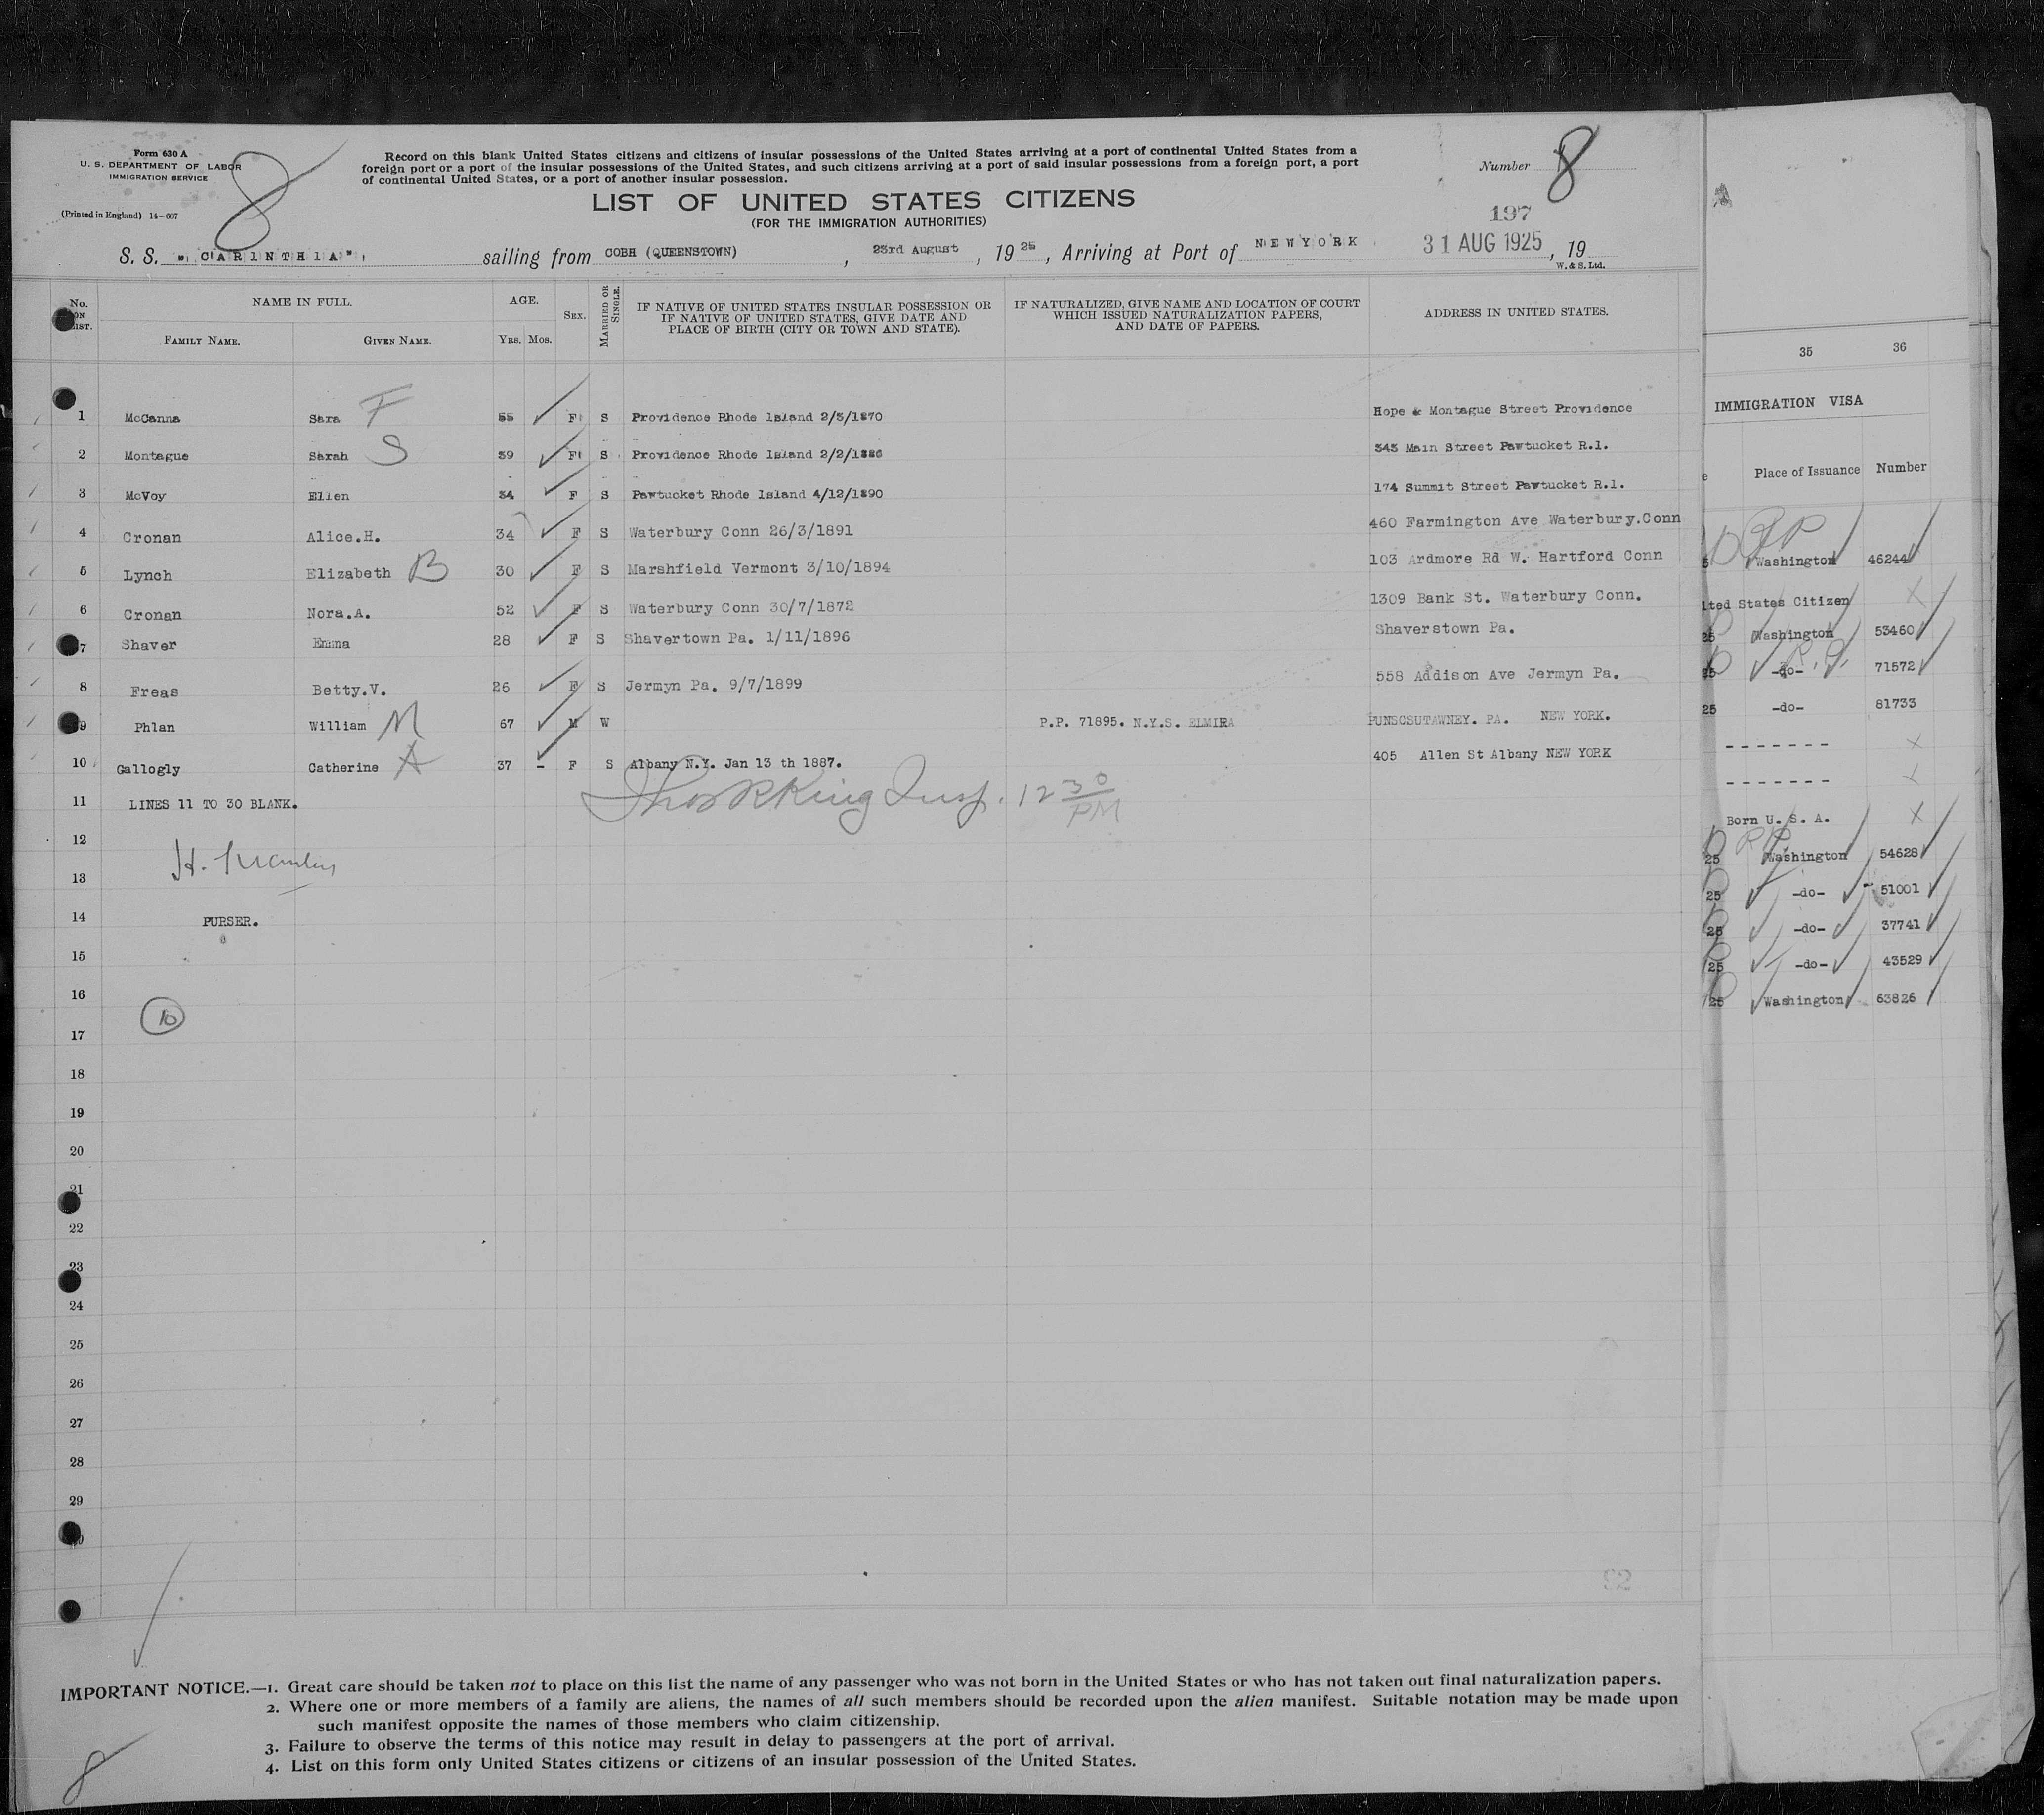 Form 630 A
U. S. DEPARTMENT OF LABOR
IMMIGRATION SERVICE
(Printed in England) 14-607
8
Record on this blank United States citizens and citizens of insular possessions of the United States arriving at a port of continental United States from a
foreign port or a port of the insular possessions of the United States, and such citizens arriving at a port of said insular possessions from a foreign port, a port
of continental United States, or a port of another insular possession.
Number 8
LIST OF UNITED STATES CITIZENS
(FOR THE IMMIGRATION AUTHORITIES)
197
S. S. "CARINTHIA" sailing from COBH (QUEENSTOWN), 23rd August, 1925, Arriving at Port of NEWYORK 31 AUG 1925, 19
W. & S. Ltd.
No. ON LIST. NAME IN FULL. AGE. SEX. MARRIED OR SINGLE. IF NATIVE OF UNITED STATES INSULAR POSSESSION OR IF NATIVE OF UNITED STATES, GIVE DATE AND PLACE OF BIRTH (CITY OR TOWN AND STATE). IF NATURALIZED, GIVE NAME AND LOCATION OF COURT WHICH ISSUED NATURALIZATION PAPERS, AND DATE OF PAPERS. ADDRESS IN UNITED STATES.
FAMILY NAME. GIVEN NAME. YRS. MOS.
1 McCanna Sara F 55 F S Providence Rhode Island 2/3/1870 Hope & Montague Street Providence
2 Montague Sarah S 39 F S Providence Rhode Island 2/2/1886 343 Main Street Pawtucket R.I.
3 McVoy Ellen 34 F S Pawtucket Rhode Island 4/12/1890 174 Summit Street Pawtucket R.I.
4 Cronan Alice.H. 34 F S Waterbury Conn 26/3/1891 460 Farmington Ave Waterbury.Conn
5 Lynch Elizabeth B 30 F S Marshfield Vermont 3/10/1894 103 Ardmore Rd W. Hartford Conn
6 Cronan Nora.A. 52 F S Waterbury Conn 30/7/1872 1309 Bank St. Waterbury Conn.
7 Shaver Emma 28 F S Shavertown Pa. 1/11/1896 Shaverstown Pa.
8 Freas Betty.V. 26 F S Jermyn Pa. 9/7/1899 558 Addison Ave Jermyn Pa.
9 Phlan William M 67 M W P.P. 71895. N.Y.S. ELMIRA PUNSCSUTAWNEY. PA. NEW YORK.
10 Gallogly Catherine A 37 - F S Albany N.Y. Jan 13 th 1887. 405 Allen St Albany NEW YORK
11 LINES 11 TO 30 BLANK. Thos R King Insp. 12 30 PM
12
13
14 PURSER.
15
16
10
17
18
19
20
21
22
23
24
25
26
27
28
29
35 36
IMMIGRATION VISA
Place of Issuance Number
Washington 46244
ited States Citizen
25 Washington 53460
25 -do- 71572
25 -do- 81733
-------
-------
Born U. S. A.
25 Washington 54628
25 -do- 51001
25 -do- 37741
25 -do- 43529
25 Washington 63826
IMPORTANT NOTICE.—1. Great care should be taken not to place on this list the name of any passenger who was not born in the United States or who has not taken out final naturalization papers.
2. Where one or more members of a family are aliens, the names of all such members should be recorded upon the alien manifest. Suitable notation may be made upon
such manifest opposite the names of those members who claim citizenship.
3. Failure to observe the terms of this notice may result in delay to passengers at the port of arrival.
4. List on this form only United States citizens or citizens of an insular possession of the United States.
8